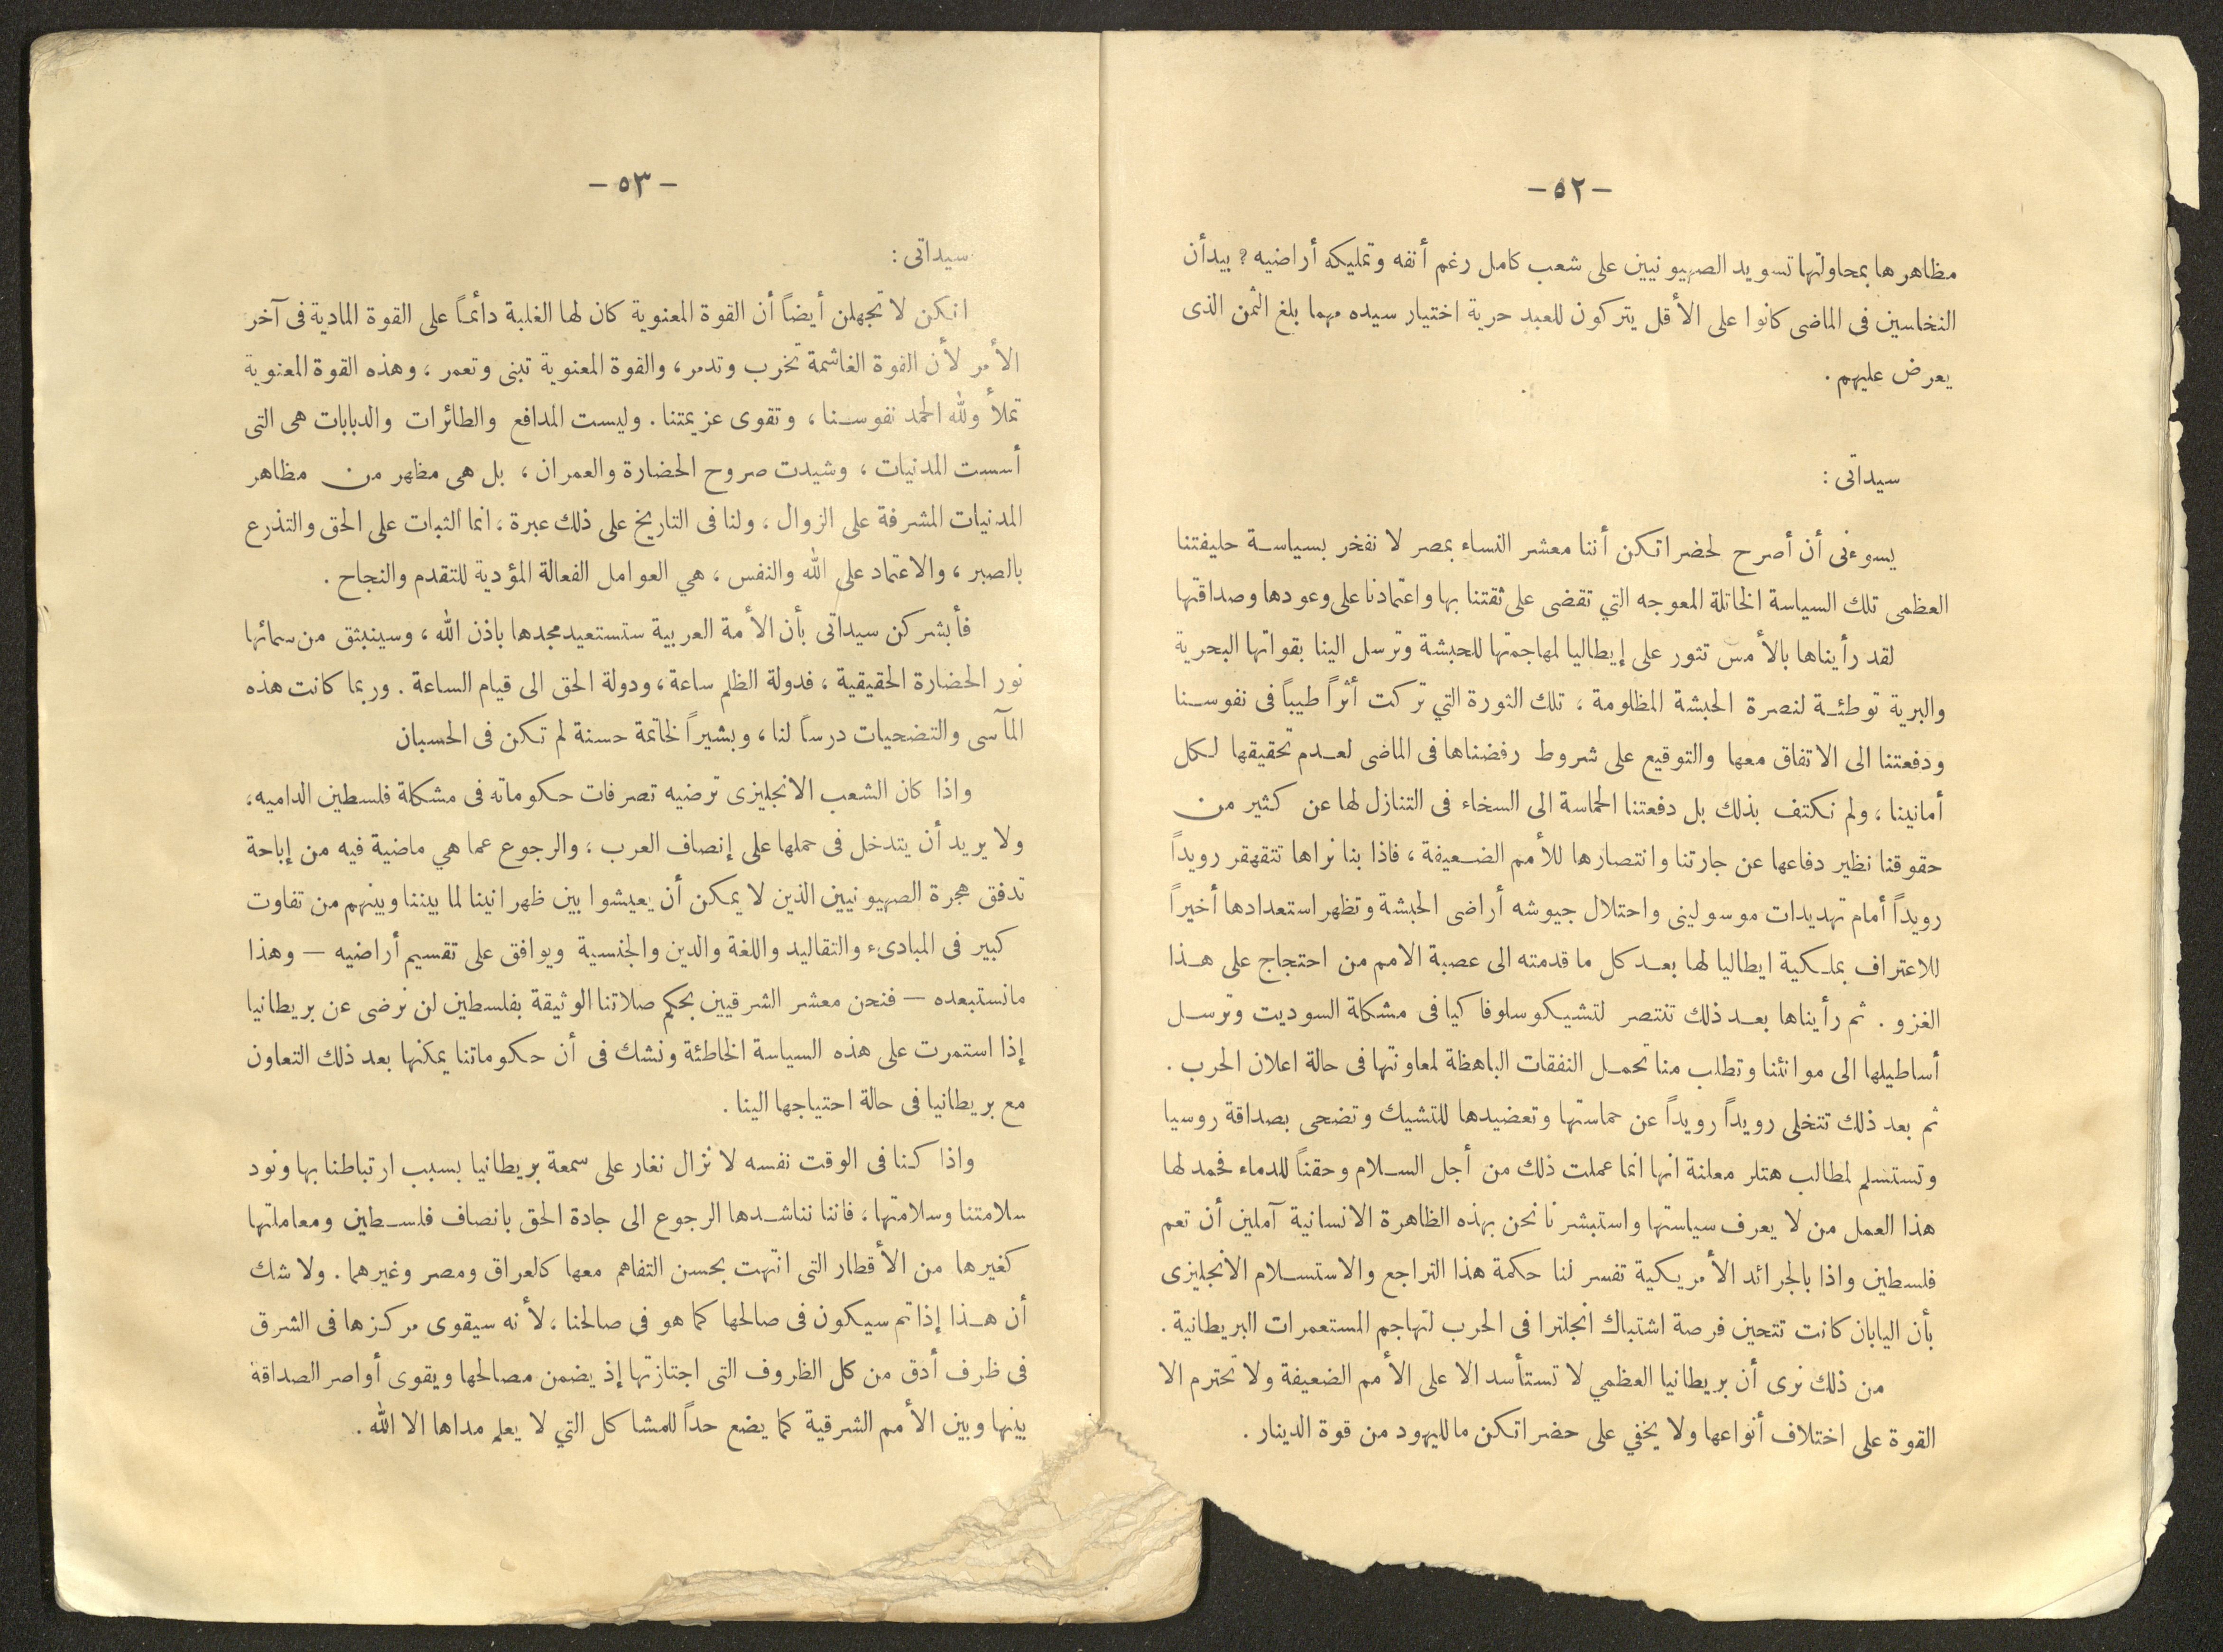 — ٥٢ —
مظاهرها بمحاولتها تسويد الصهيونيين على شعب كامل رغم أنفه وتمليكه أراضيه ? بيد أن
النخاسين فى الماضى كانوا على الأقل يتركون للعبد حرية اختيار سيده مهما بلغ الثمن الذى
يعرض عليهم .
سيداتى :
يسوءنى أن أصرح لحضراتكن أننا معشر النساء بمصر لا نفخر بسياسة حليفتنا
العظمى تلك السياسة الخاتلة المعوجه التي تقضى على ثقتنا بها واعتمادنا على وعودها وصداقتها
لقد رأيناها بالأمس تثور على إيطاليا لمهاجمتها للحبشة وترسل الينا بقواتها البحرية
والبرية توطئة لنصرة الحبشة المظلومة ، تلك الثورة التي تركت أثراً طيباً فى نفوسنا
ودفعتنا الى الاتفاق معها والتوقيع على شروط رفضناها فى الماضى لعدم تحقيقها لكل
أمانينا ، ولم نكتف بذلك بل دفعتنا الحماسة الى السخاء فى التنازل لها عن كثير من
حقوقنا نظير دفاعها عن جارتنا وانتصارها للأمم الضعيفة ، فاذا بنا نراها تتقهقر رويداً
رويداً أمام تهديدات موسولينى واحتلال جيوشه أراضى الحبشة وتظهر استعدادها أخيراً
للاعتراف بملكية ايطاليا لها بعد كل ما قدمته الى عصبة الامم من احتجاج على هذا
الغزو . ثم رأيناها بعد ذلك تنتصر لتشيكوسلوفاكيا فى مشكلة السوديت وترسل
أساطيلها الى موانئنا وتطلب منا تحمل النفقات الباهظة لمعاونتها فى حالة اعلان الحرب .
ثم بعد ذلك تتخلى رويداً رويداً عن حماستها وتعضيدها للتشيك وتضحى بصداقة روسيا
وتستسلم لمطالب هتلر معلنة انها انما عملت ذلك من أجل السلام وحقناً للدماء فحمد لها
هذا العمل من لا يعرف سياستها واستبشرنا نحن بهذه الظاهرة الانسانية آملين أن تعم
فلسطين واذا بالجرائد الأمريكية تفسر لنا حكمة هذا التراجع والاستسلام الانجليزى
بأن اليابان كانت تتحين فرصة اشتباك انجلترا فى الحرب لتهاجم المستعمرات البريطانية .
من ذلك نرى أن بريطانيا العظمي لا تستأسد الا على الأمم الضعيفة ولا تحترم الا
القوة على اختلاف أنواعها ولا يخفي على حضراتكن ما لليهود من قوة الدينار .
— ٥٣ —
سيداتى :
انكن لا تجهلن أيضاً أن القوة المعنوية كان لها الغلبة دائماً على القوة المادية فى آخر
الأمر لأن القوة الغاشمة تخرب وتدمر ، والقوة المعنوية تبنى وتعمر ، وهذه القوة المعنوية
تملأ ولله الحمد نفوسنا ، وتقوى عزيمتنا . وليست المدافع والطائرات والدبابات هى التى
أسست المدنيات ، وشيدت صروح الحضارة والعمران ، بل هى مظهر من مظاهر
المدنيات المشرفة على الزوال ، ولنا فى التاريخ على ذلك عبرة ، انما الثبات على الحق والتذرع
بالصبر ، والاعتماد على الله والنفس ، هي العوامل الفعالة المؤدية للتقدم والنجاح .
فأبشركن سيداتى بأن الأمة العربية ستستعيد مجدها باذن الله ، وسينبثق من سمائها
نور الحضارة الحقيقية ، فدولة الظلم ساعة ، ودولة الحق الى قيام الساعة . وربما كانت هذه
المآسى والتضحيات درساً لنا ، وبشيراً لخاتمة حسنة لم تكن فى الحسبان
واذا كان الشعب الانجليزى ترضيه تصرفات حكوماته فى مشكلة فلسطين الداميه ،
ولا يريد أن يتدخل فى حملها على إنصاف العرب ، والرجوع عما هي ماضية فيه من إباحة
تدفق هجرة الصهيونيين الذين لا يمكن أن يعيشوا بين ظهرانينا لما بيننا وبينهم من تفاوت
كبير فى المبادىء والتقاليد واللغة والدين والجنسية ويوافق على تقسيم أراضيه — وهذا
مانستبعده — فنحن معشر الشرقيين بحكم صلاتنا الوثيقة بفلسطين لن نرضى عن بريطانيا
إذا استمرت على هذه السياسة الخاطئة ونشك فى أن حكوماتنا يمكنها بعد ذلك التعاون
مع بريطانيا فى حالة احتياجها الينا .
واذا كنا فى الوقت نفسه لا نزال نغار على سمعة بريطانيا بسبب ارتباطنا بها ونود
سلامتنا وسلامتها ، فاننا نناشدها الرجوع الى جادة الحق بانصاف فلسطين ومعاملتها
كغيرها من الأقطار التى انتهت بحسن التفاهم معها كالعراق ومصر وغيرهما . ولا شك
أن هذا إذا تم سيكون فى صالحها كما هو في صالحنا ، لأنه سيقوى مركزها فى الشرق
فى ظرف أدق من كل الظروف التى اجتازتها إذ يضمن مصالحها ويقوى أواصر الصداقة
بينها وبين الأمم الشرقية كما يضع حداً للمشاكل التي لا يعلم مداها الا الله .